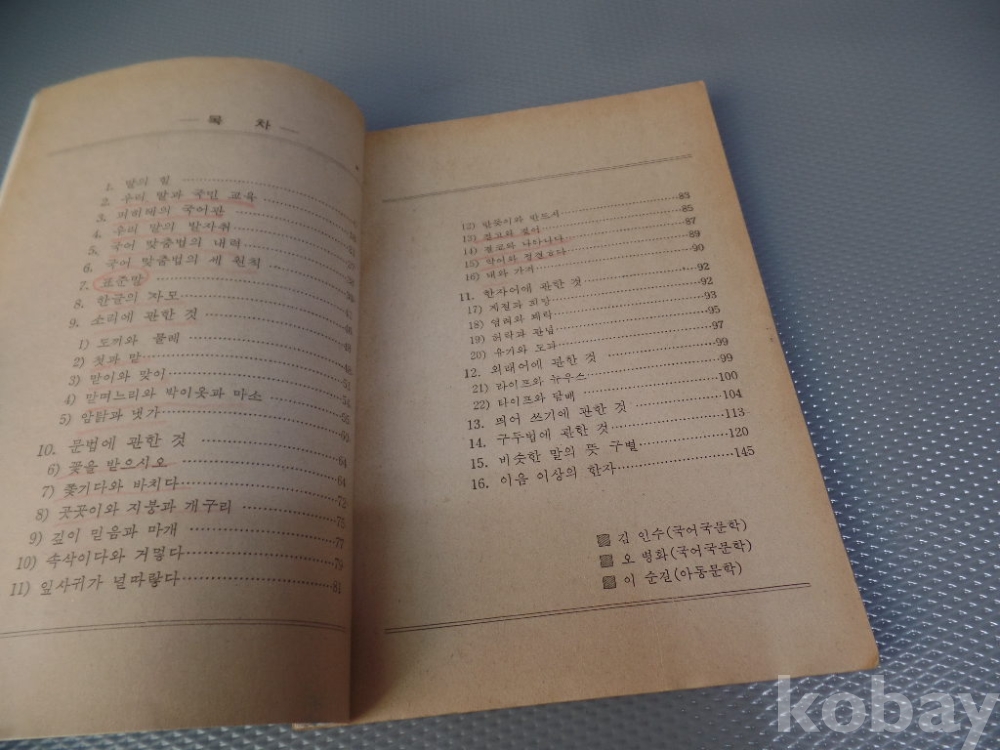 — 목 차 —
1. 말의 힘
2. 우리 말과 국민 교육
3. 의 국어관
4. 우리 말의 발자취
5. 국어 맞춤법의 내력
6. 국어 맞춤법의 세 원칙
7. 표준말
8. 한글의 자모
9. 소리에 관한 것
1) 도끼와 물레
2) 첫과 맏
3) 맏이와 맞이
4) 맏며느리와 박이옷과 마소
5) 암탉과 냇가
10. 문법에 관한 것
6) 꽃을 받으시오 64
7) 쫓기다와 바치다 73
8) 곳곳이와 지붕과 개구리 75
9) 깊이 믿음과 마개 77
10) 속삭이다와 거멓다 79
11) 잎사귀가 널따랗다 81
12) 반듯이와 반드시 83
13) 옳이 85
14) 나아나다 87
15) 89
16) 내와 가지 90
11. 한자어에 관한 것 92
17) 계절과 희망 92
18) 염려와 쾌락 93
19) 허락과 관념 95
20) 유기와 도과 97
12. 외래어에 관한 것 99
21) 라이프와 뉴우스 99
22) 나이프와 담배 100
13. 띄어 쓰기에 관한 것 104
14. 구두법에 관한 것 113
15. 비슷한 말의 뜻 구별 120
16. 이음 이상의 한자 145
김 인수(국어국문학)
오 병화(국어국문학)
이 순진(아동문학)
kobay